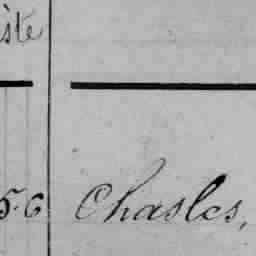 iste
56 Chasles,